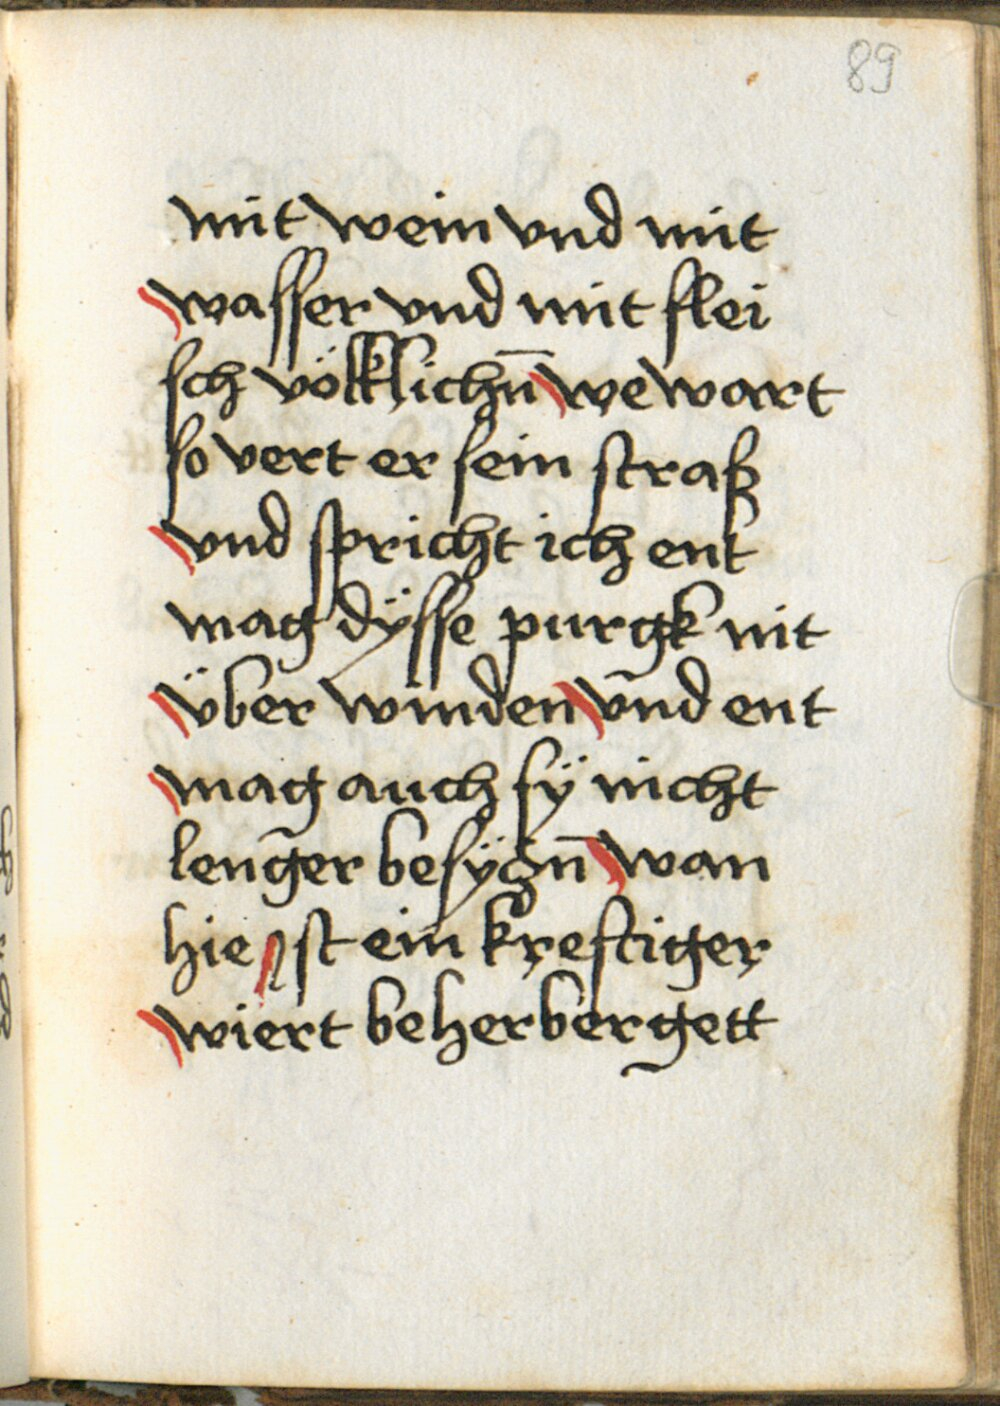 89
mit wein vnd mit
wasser vnd mit flei
sch völklichn̄ wewart
so vert er sein straß
vnd spricht ich ent
mag dÿsse purgk nit
über winden vnd ent
mag auch sÿ nicht
lenger besÿgn̄ wan
hie ist ein kreftiger
wiert beherbergett